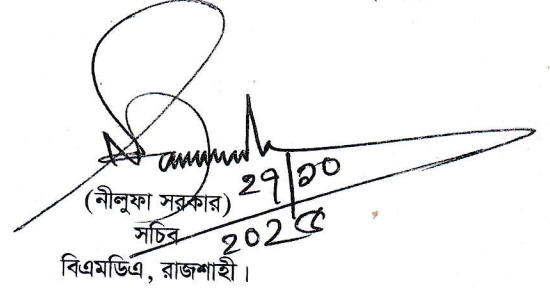 ২৭|১০
(নীলুফা সরকার)
সচিব
২০২৫
বিএমডিএ, রাজশাহী।